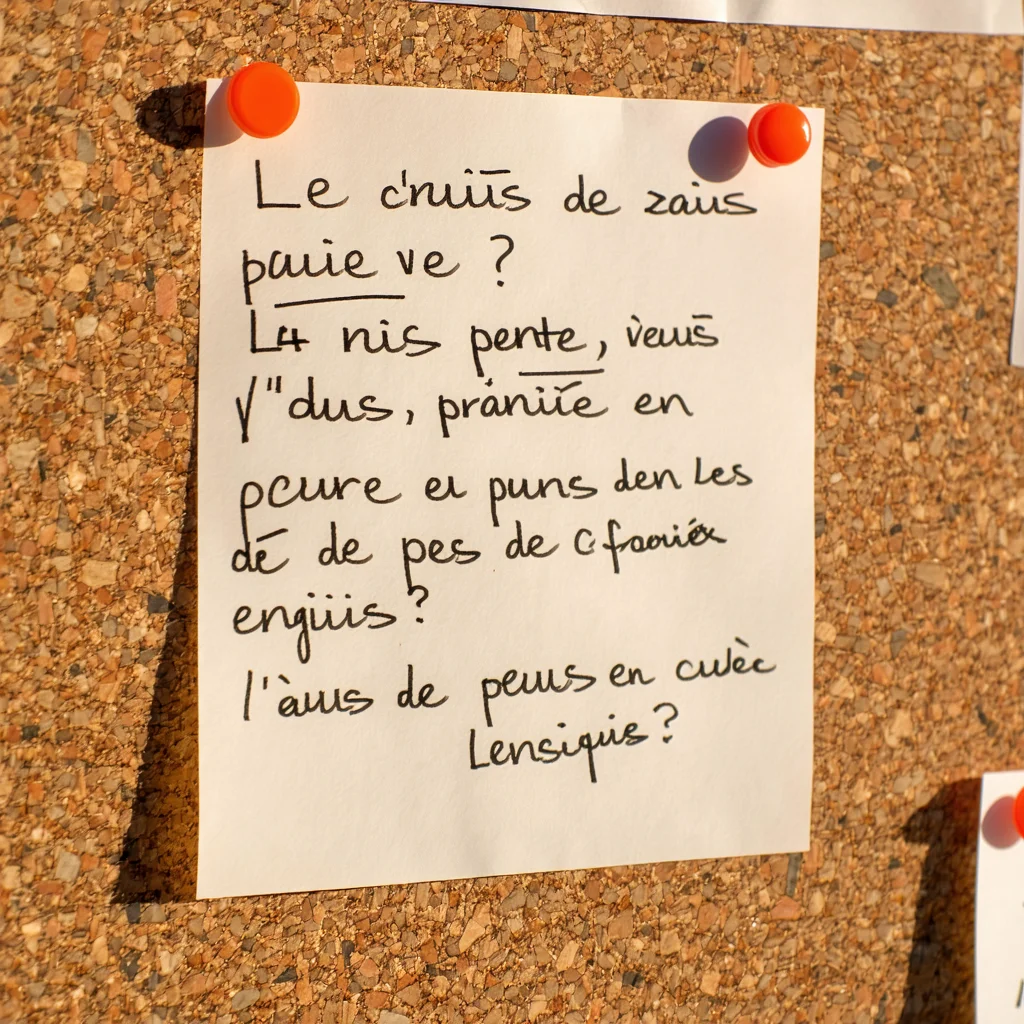 Le c'nuīs de zaus
pauie ve ?
L4 nis pente, veus
dus, pránīīe en
pcure eı puns den Les
dē de pes de
engiiis ?
l'àuus de peuus en cwèc
Lensiquis ?